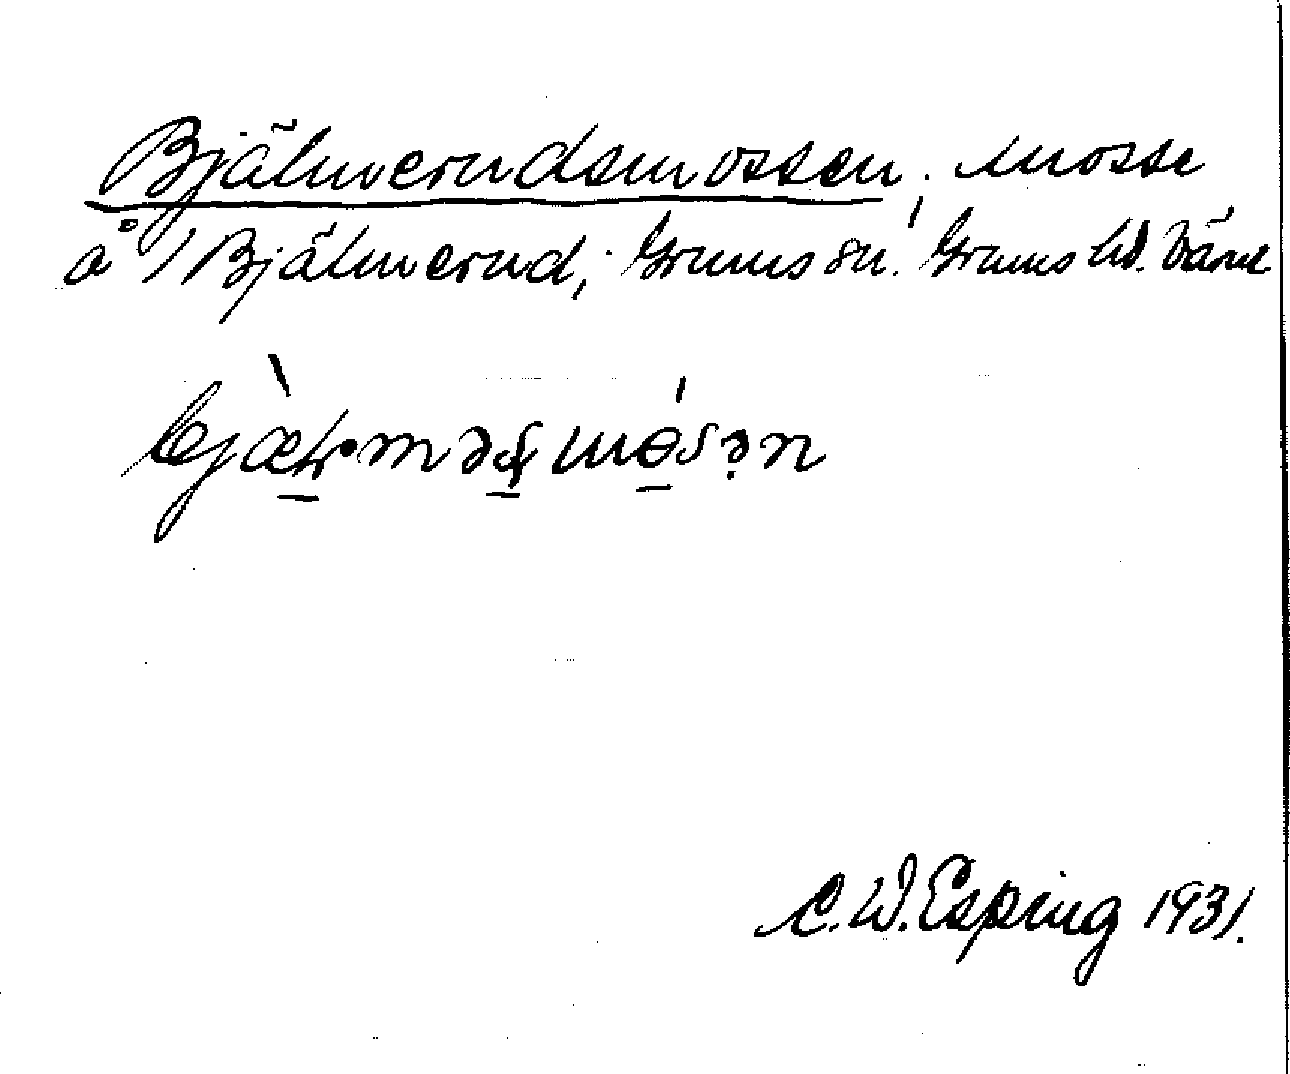 Bjälmerudsmossen, mosse
å Bjälmerud, Grums sn. Grums hd. Värml
C. W. Esping 1931.